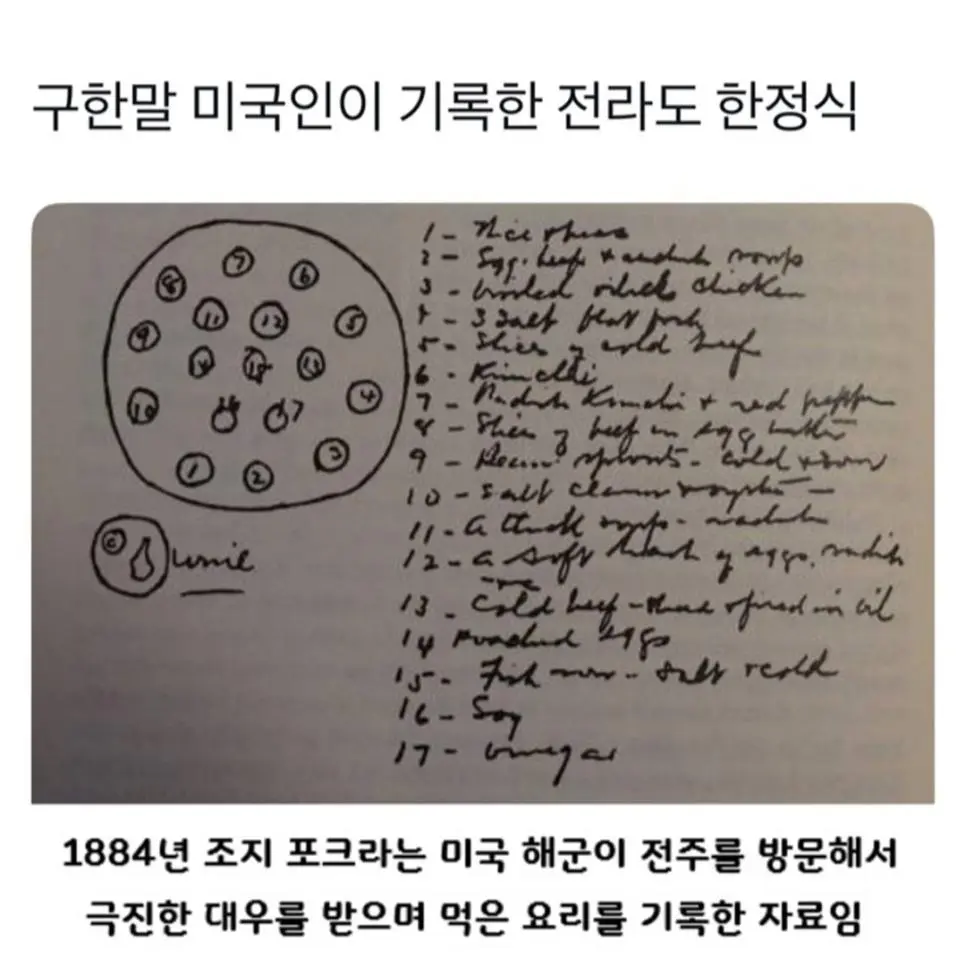 구한말 미국인이 기록한 전라도 한정식
7
8 6
11 12 5
9
14 15 13
10 16 17 4
3
1 2
wine
1 - Rice & beans
2 - Egg, beef & radish soup
3 - broiled chicken
4 - 3 salt
5 - Slices of cold beef
6 - Kimchi
7 - Radish Kimchi & red pepper
8 - Slices of beef in egg batter
9 - Bean sprouts - cold & sour
10 - Salt clams & oysters
11 - A thick soup - radish
12 - a soft hash of eggs, radish
13 - Cold beef - fried in oil
14 Poached eggs
15 - Fish roe - salt & cold
16 - Soy
17 - Vinegar
1884년 조지 포크라는 미국 해군이 전주를 방문해서
극진한 대우를 받으며 먹은 요리를 기록한 자료임